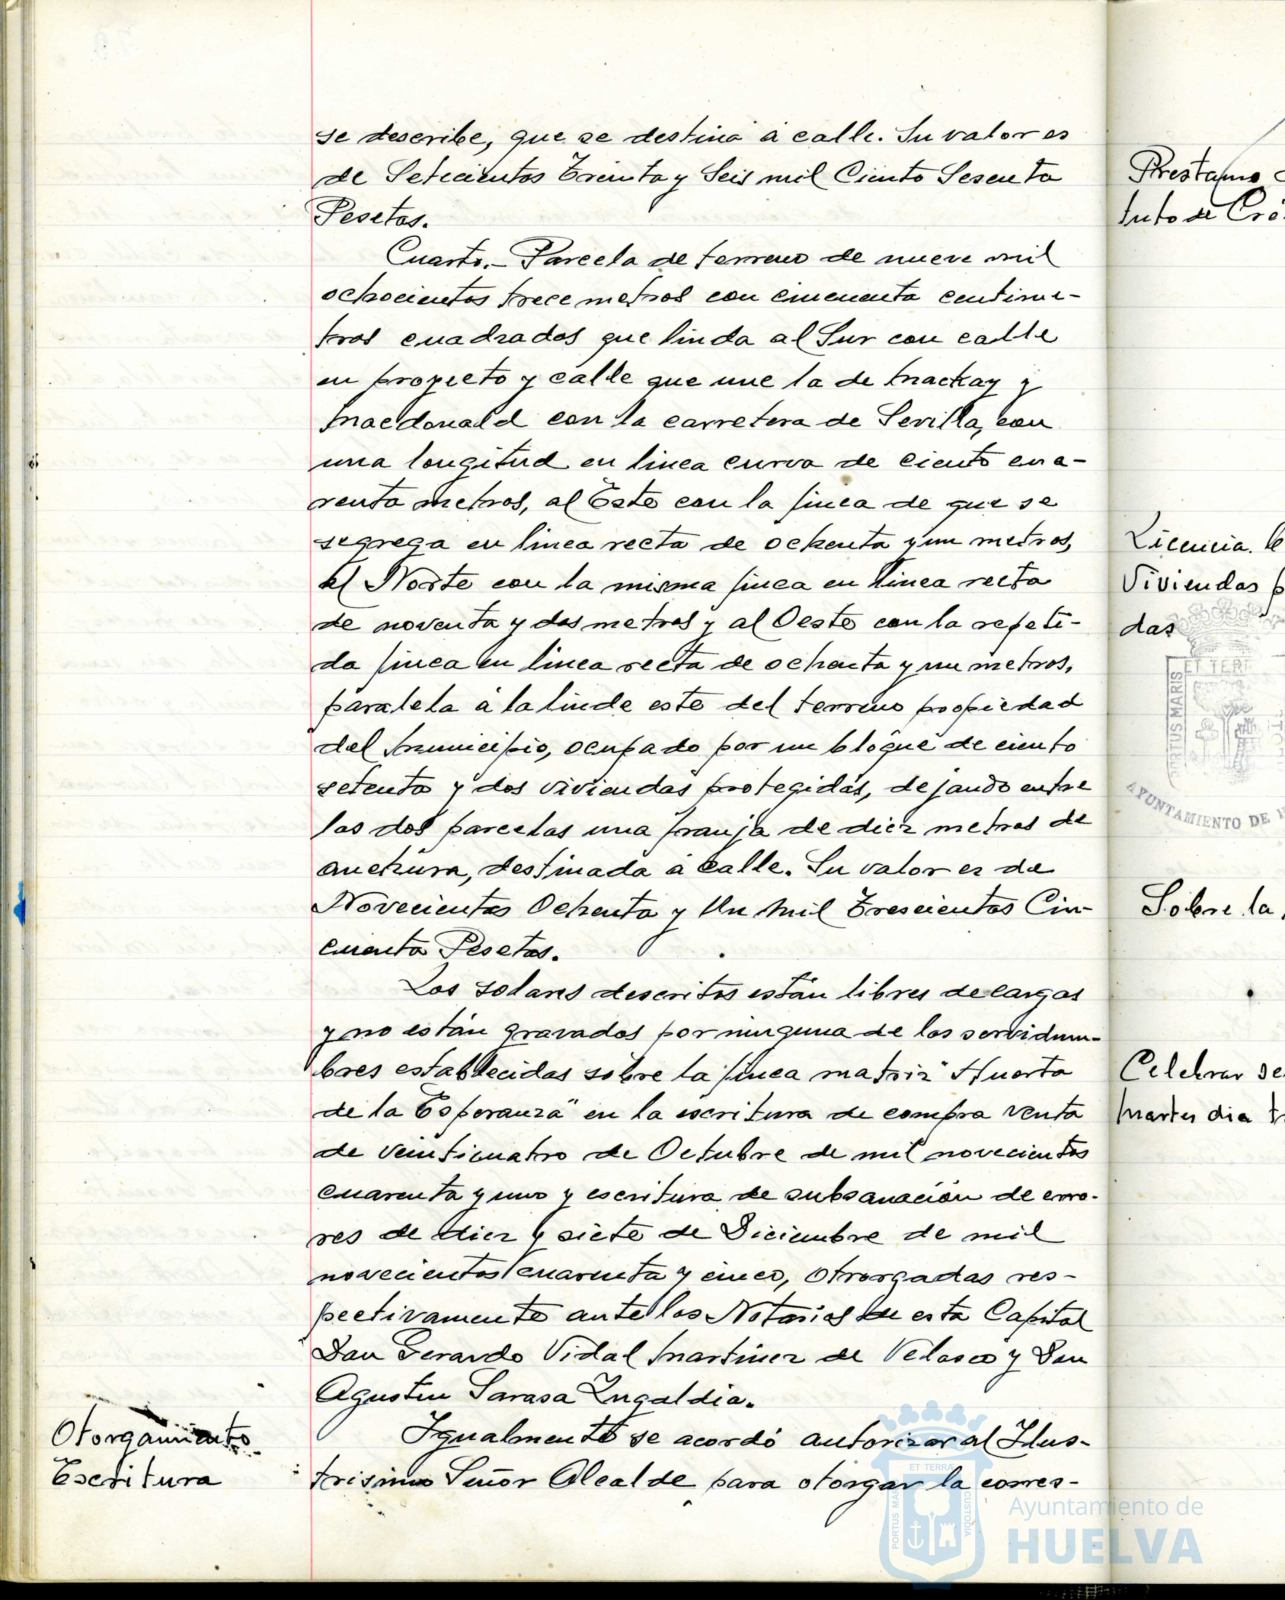 se describe, que se destina á calle. Su valor es
de Setecientas Treinta y Seis mil Ciento Sesenta
Pesetas.
Cuarto.- Parcela de terreno de nueve mil
ochocientos trece metros con cincuenta centíme-
tros cuadrados que linda al Sur con calle
en proyecto y calle que une la de Mackay y
Macdonald con la carretera de Sevilla, con
una longitud en línea curva de ciento cua-
renta metros, al Este con la finca de que se
segrega en línea recta de ochenta y un metros,
al Norte con la misma finca en línea recta
de noventa y dos metros y al Oeste con la repeti-
da finca en línea recta de ochenta y un metros,
paralela á la linde este del terreno propiedad
del Municipio, ocupado por un bloque de ciento
setenta y dos viviendas protegidas, dejando entre
las dos parcelas una franja de diez metros de
anchura, destinada á calle. Su valor es de
Novecientas Ochenta y Un Mil Trescientas Cin-
cuenta Pesetas.
Los solares descritos están libres de cargas
y no están gravados por ninguna de las servidum-
bres establecidas sobre la finca matriz "Huerta
de la Esperanza" en la escritura de compra venta
de veinticuatro de Octubre de mil novecientos
cuarenta y uno y escritura de subsanación de erro-
res de diez y siete de Diciembre de mil
novecientos cuarenta y cinco, otorgadas res-
pectivamente ante los Notarios de esta Capital
Don Gerardo Vidal Martínez de Velasco y Don
Agustín Sarasa Zugaldía.
Otorgamiento
Escritura
Igualmente se acordó autorizar al Ilus-
trísimo Señor Alcalde para otorgar la corres-
Prestamo
tuto de Cré
Licencia
Viviendas p
das
PORTUS MARIS ET TERR
AYUNTAMIENTO DE H
Sobre la
Celebrar se
Martes dia t
PORTUS MARIS ET TERRAE CUSTODIA
Ayuntamiento de
HUELVA